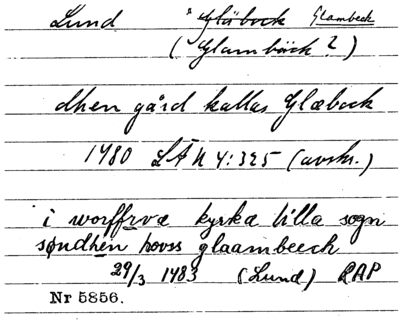 Lund * Glöbock Glambeck
(Glambäck?)
dhen gård kallas Glæbock
1480 LÅ N 4:325 (avskr.)
i worffrvæ kyrkæ litla sogn
søndhen hooss glaambeech
29/3 1483 (Lund) RAP
Nr 5856.